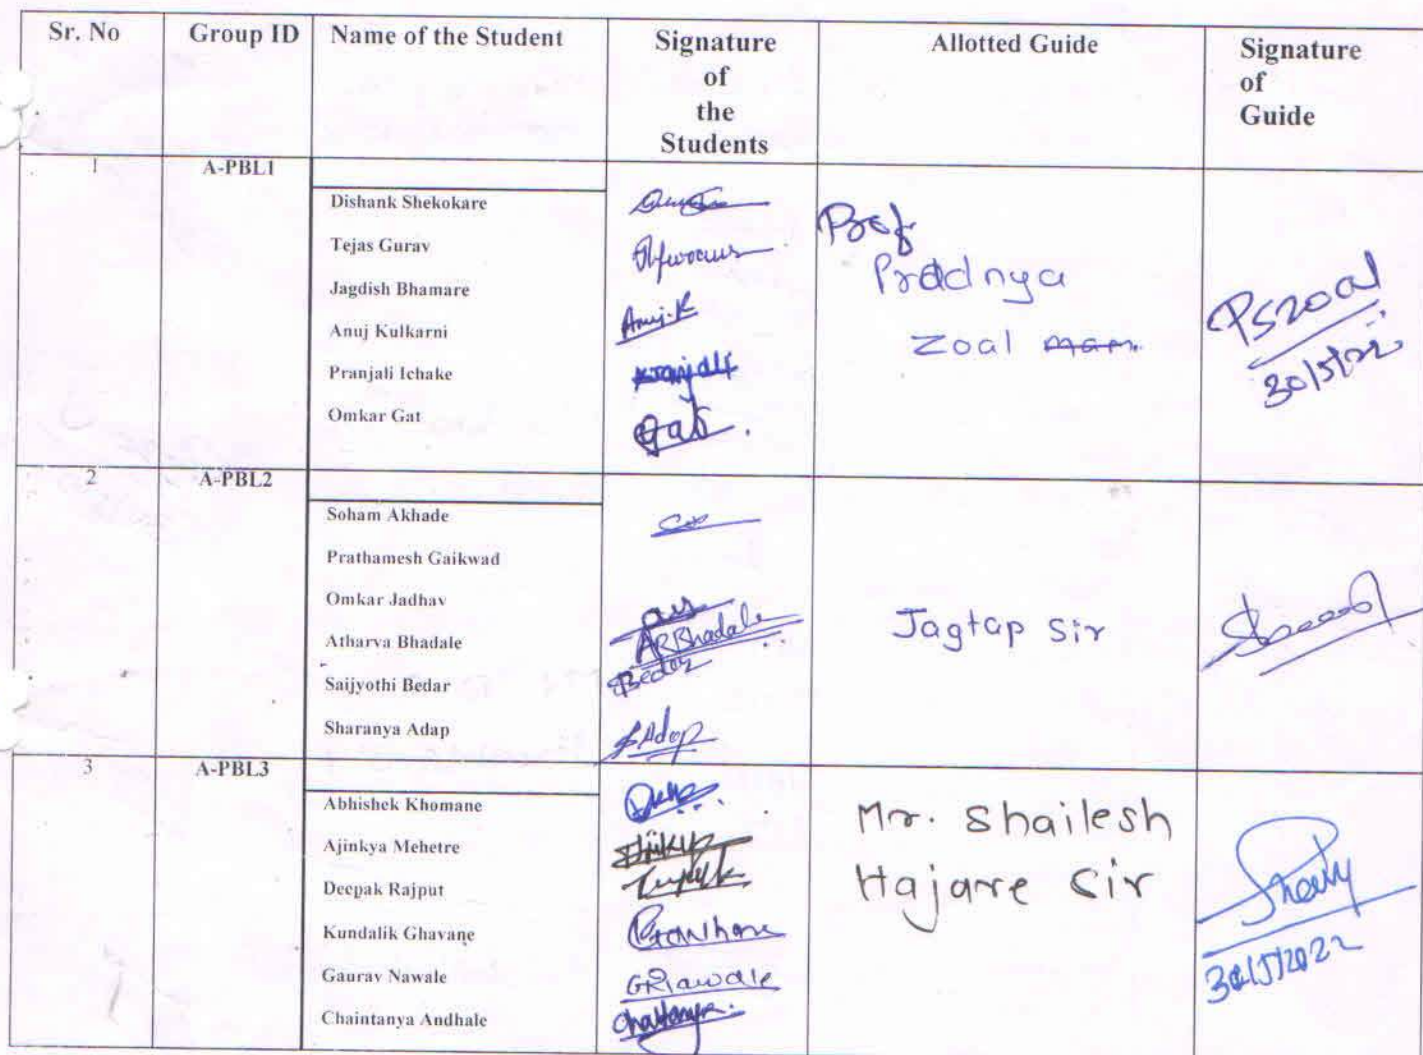 Sr. No Group ID Name of the Student Signature of the Students Allotted Guide Signature of Guide
1 A-PBL1
Dishank Shekokare
Tejas Gurav
Jagdish Bhamare
Anuj Kulkarni Anuj.K
Pranjali Ichake
Omkar Gat Gat.
Prof.
Pradnya
Zoal mam.
PSZoal
30/5/22
2 A-PBL2
Soham Akhade
Prathamesh Gaikwad
Omkar Jadhav
Atharva Bhadale ARBhadale
Saijyothi Bedar
Sharanya Adap SAdap
Jagtap Sir
3 A-PBL3
Abhishek Khomane
Ajinkya Mehetre
Deepak Rajput
Kundalik Ghavane
Gaurav Nawale GRNawale
Chaintanya Andhale Chaitanya.
Mr. Shailesh
Hajare Sir
30/5/2022